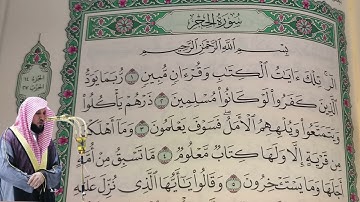 سُورَةُ الحِجْرِ
بِسْمِ اللَّهِ الرَّحْمَٰنِ الرَّحِيمِ
الٓر تِلْكَ ءَايَٰتُ الْكِتَٰبِ وَقُرْءَانٍ مُّبِينٍ ١ رُّبَمَا يَوَدُّ
الَّذِينَ كَفَرُوا۟ لَوْ كَانُوا۟ مُسْلِمِينَ ٢ ذَرْهُمْ يَأْكُلُوا۟
وَيَتَمَتَّعُوا۟ وَيُلْهِهِمُ الْأَمَلُ فَسَوْفَ يَعْلَمُونَ ٣ وَمَآ أَهْلَكْنَا
مِن قَرْيَةٍ إِلَّا وَلَهَا كِتَابٌ مَّعْلُومٌ ٤ مَّا تَسْبِقُ مِنْ أُمَّةٍ
أَجَلَهَا وَمَا يَسْتَـْٔخِرُونَ ٥ وَقَالُوا۟ يَٰٓأَيُّهَا الَّذِى نُزِّلَ عَلَيْهِ